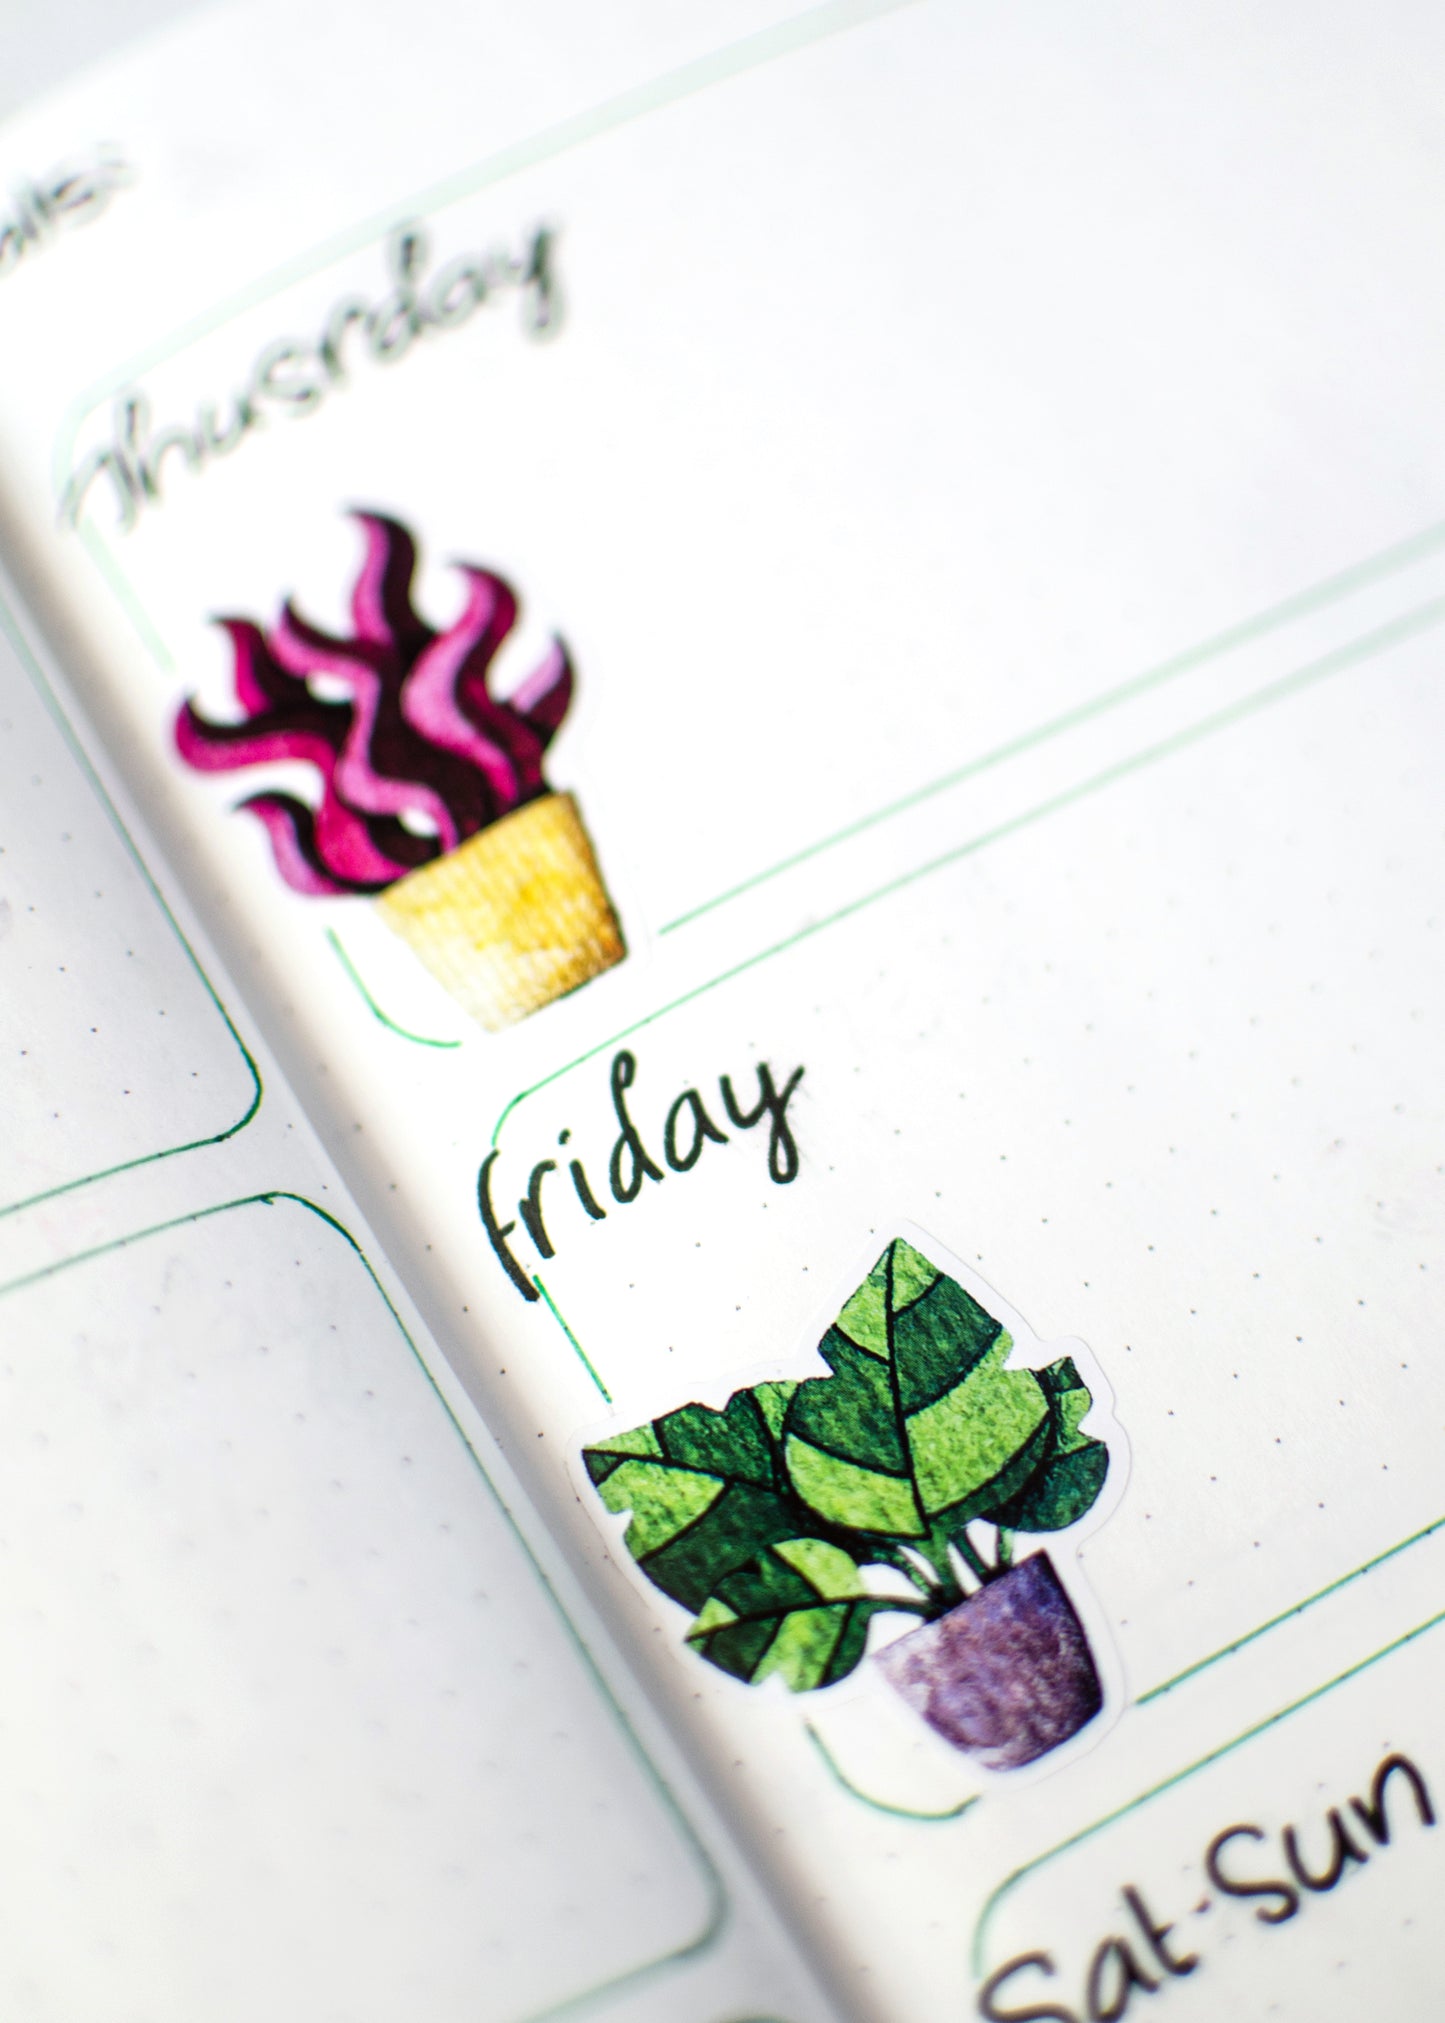 Thusrday
friday
Sat-Sun